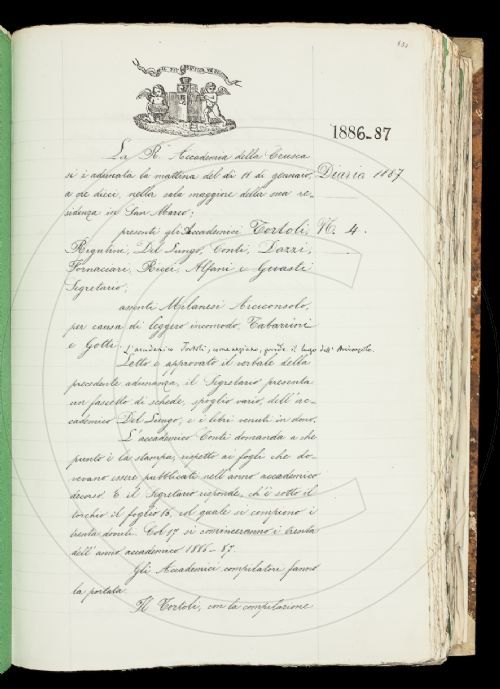 1886-87
La R. Accademia della Crusca
si è adunata la mattina del dì 11 di gennaio,
a ore dieci, nella sala maggiore della sua re-
sidenza in San Marco;
Diaria 1887
N. 4.
presenti gli Accademici Tortoli,
Rigutini, Del Lungo, Conti, Dazzi,
Fornaciari, Ricci, Alfani e Guasti
Segretario;
assenti Milanesi Arciconsolo,
per causa di leggero incomodo, Tabarrini
e Gotti. L'accademico Tortoli, come anziano, prende il luogo dell'Arciconsolo.
Letto e approvato il verbale della
precedente adunanza, il Segretario presenta
un fascetto di schede, spoglio vario, dell'ac-
cademico Del Lungo, e i libri venuti in dono.
L'accademico Conti domanda a che
punto è la stampa, rispetto ai fogli che do-
verano essere pubblicati nell'anno accademico
decorso. E il Segretario risponde, ch'è sotto il
torchio il foglio 16, col quale si compiono i
trenta dovuti. Col 17 si cominceranno i trenta
dell'anno accademico 1886-87.
Gli Accademici compilatori fanno
la portata.
Il Tortoli, con la compilazione